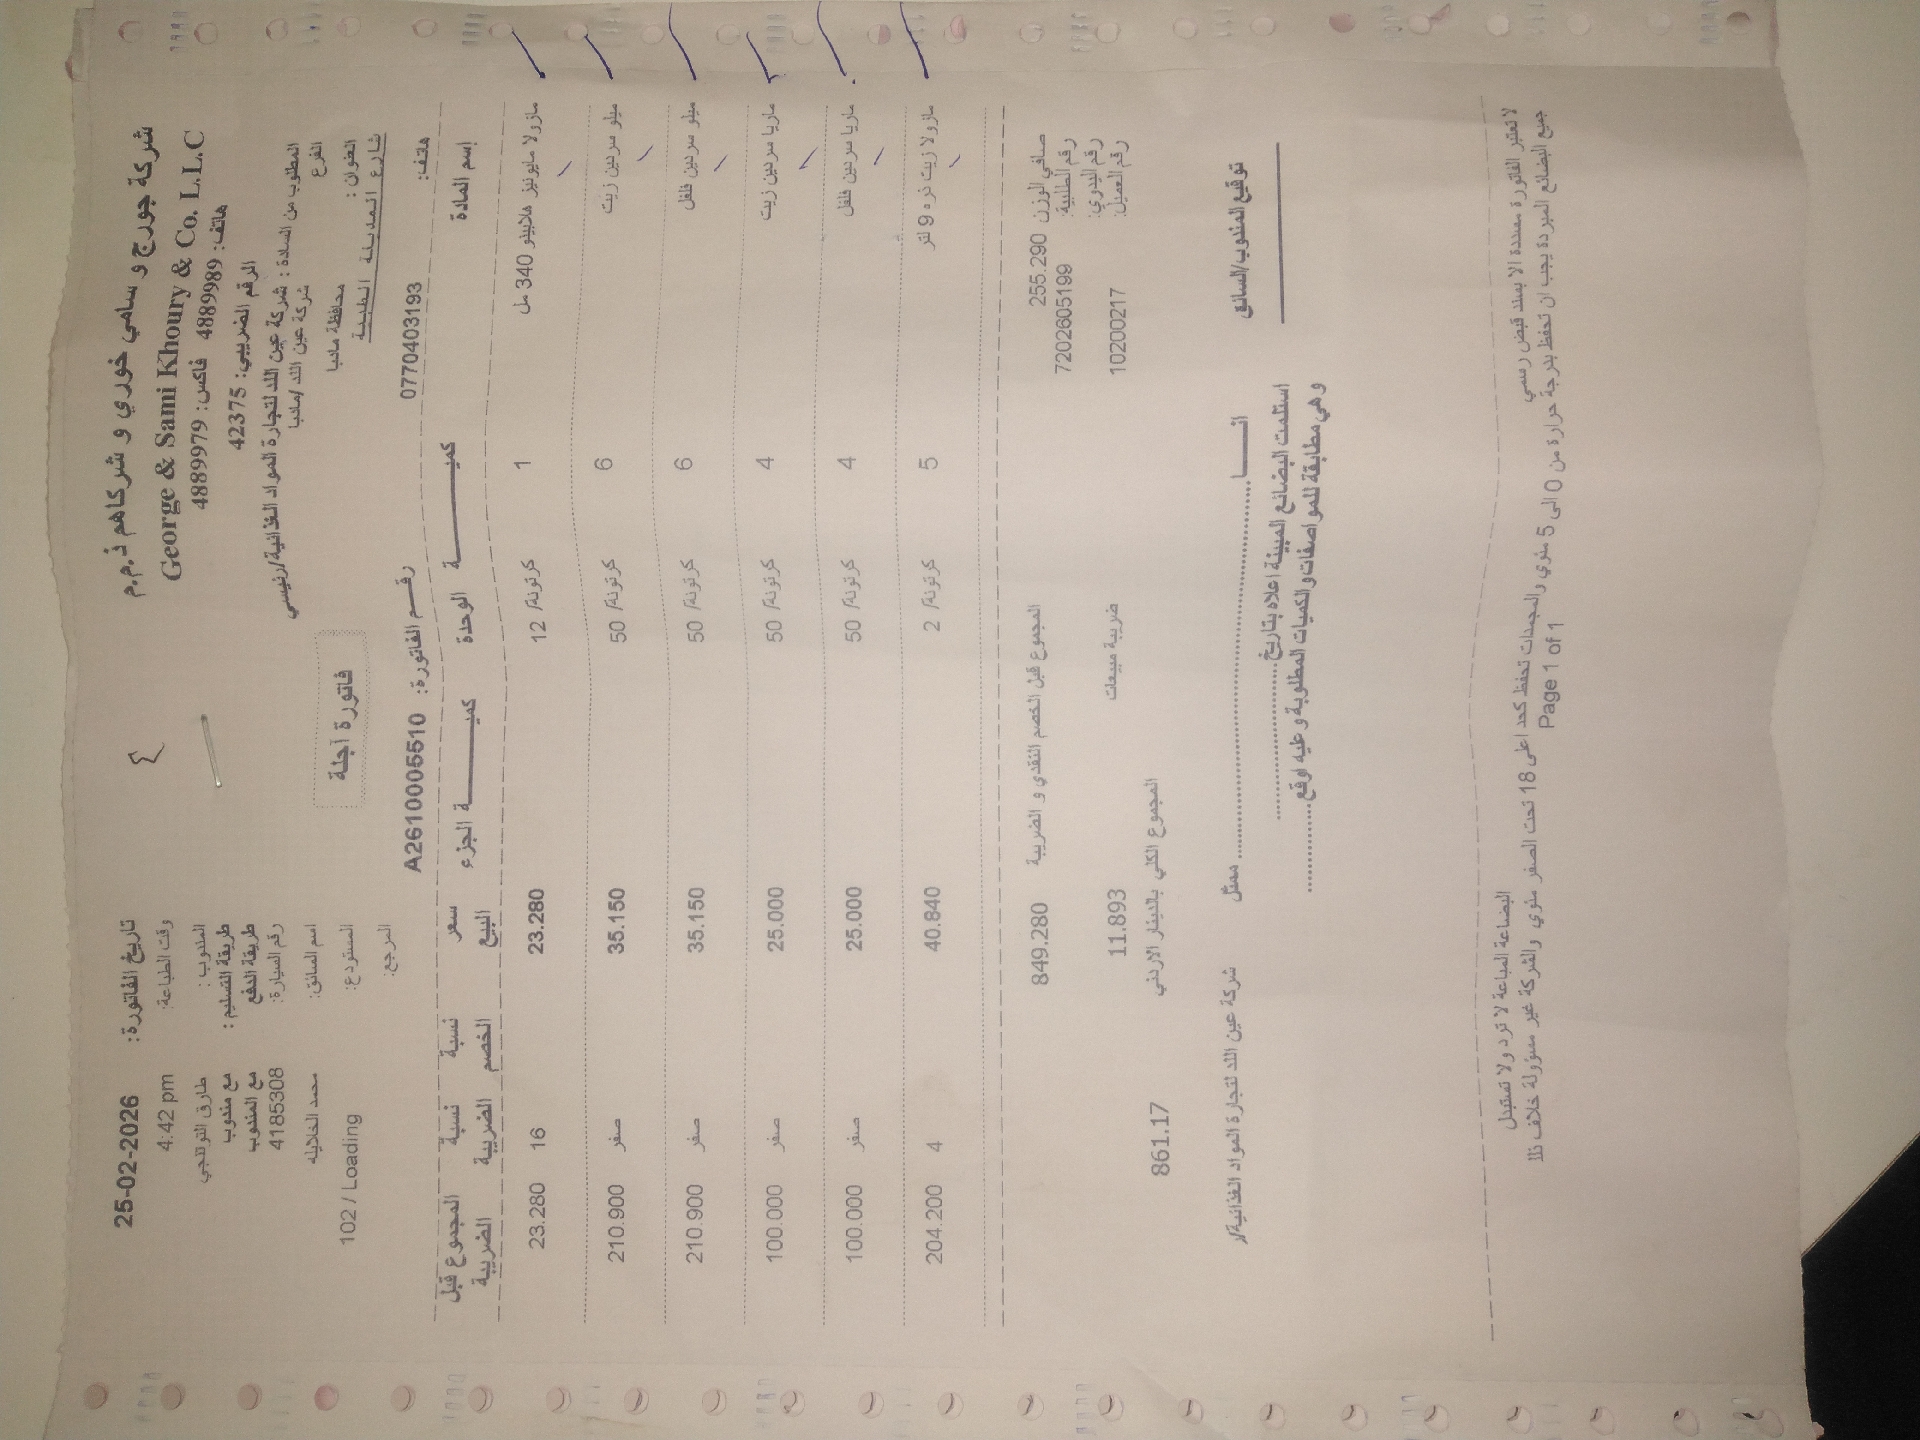 شركة جورج و سامي خوري و شركاهم ذ.م.م
George & Sami Khoury & Co. L.L.C
هاتف: 4889989 فاكس: 4889979
الرقم الضريبي: 42375
المطلوب من السادة : شركة عين اللد لتجارة المواد الغذائية/رئيسي
شركة عين اللد /مادبا
الفرع
محافظة مادبا
العنوان :
شارع المدينة الطبية
هاتف: 0770403193
تاريخ الفاتورة: 25-02-2026
وقت الطباعة: 4:42 pm
المندوب :
طريقة التسليم : مع مندوب
طريقة الدفع مع المندوب
رقم السيارة: 4185308
اسم السائق: محمد الخلايله
المستودع: 102 / Loading
المرجع:
فاتورة آجلة
رقم الفاتورة: A2610005510
إسم المادة كميـة الوحدة كميـة الجزء سعر البيع نسبة الخصم نسبة الضريبة المجموع قبل الضريبة
مازولا مايونيز هلابينو 340 مل 1 كرتونة/ 12 23.280 16 23.280
ميلو سردين زيت 6 كرتونة/ 50 35.150 صفر 210.900
ميلو سردين فلفل 6 كرتونة/ 50 35.150 صفر 210.900
ماريا سردين زيت 4 كرتونة/ 50 25.000 صفر 100.000
ماريا سردين فلفل 4 كرتونة/ 50 25.000 صفر 100.000
مازولا زيت ذره 9 لتر 5 كرتونة/ 2 40.840 4 204.200
صافي الوزن 255.290 المجموع قبل الخصم النقدي و الضريبة 849.280
رقم الطلبية: 7202605199
رقم اليدوي:
رقم العميل: 10200217 ضريبة مبيعات 11.893
المجموع الكلي بالدينار الاردني 861.17
توقيع المندوب/السائق
انـــا ........ ممثل شركة عين اللد لتجارة المواد الغذائية/ر
استلمت البضائع المبينة اعلاه بتاريخ ........
وهي مطابقة للمواصفات والكميات المطلوبة و عليه اوقع ........
لا تعتبر الفاتورة مسددة الا بسند قبض رسمي البضاعة المباعة لا ترد ولا تستبدل
جميع البضائع المبردة يجب ان تحفظ بدرجة حرارة من 0 الى 5 مئوي والمجمدات تحفظ كحد اعلى 18 تحت الصفر مئوي والشركة غير مسؤولة خلاف ذلك
Page 1 of 1